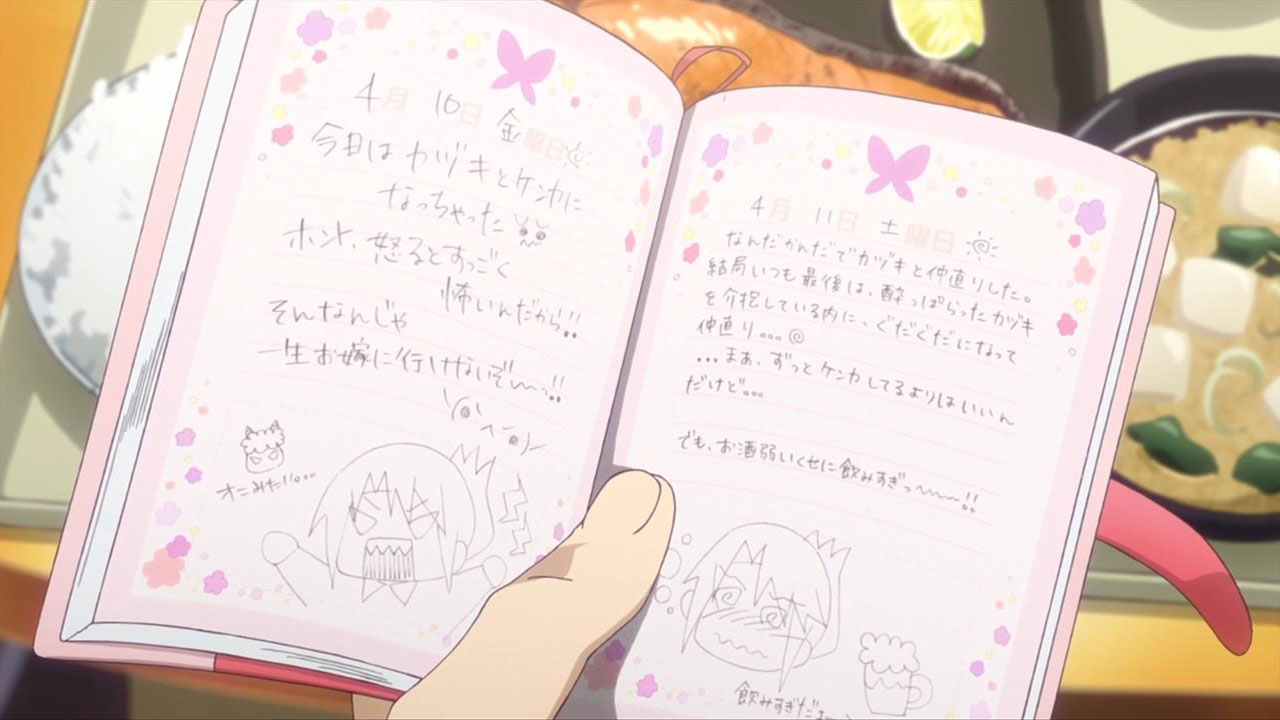 4月 10日 金曜日
今日はカヅキとケンカに
なっちゃった
ホント、怒るとすっごく
怖いんだから!!
そんなんじゃ
一生お嫁に行けないぞ〜っ!!
オニみたい。。。
4月 11日 土曜日
なんだかんだでカヅキと仲直りした。
結局いつも最後は、酔っぱらったカヅキ
を介抱している内に、ぐだぐだになって
仲直り…
…まぁ、ずっとケンカしてるよりはいいん
だけど…
でも、お酒弱いくせに飲みすぎっ〜〜〜!!
飲みすぎだ